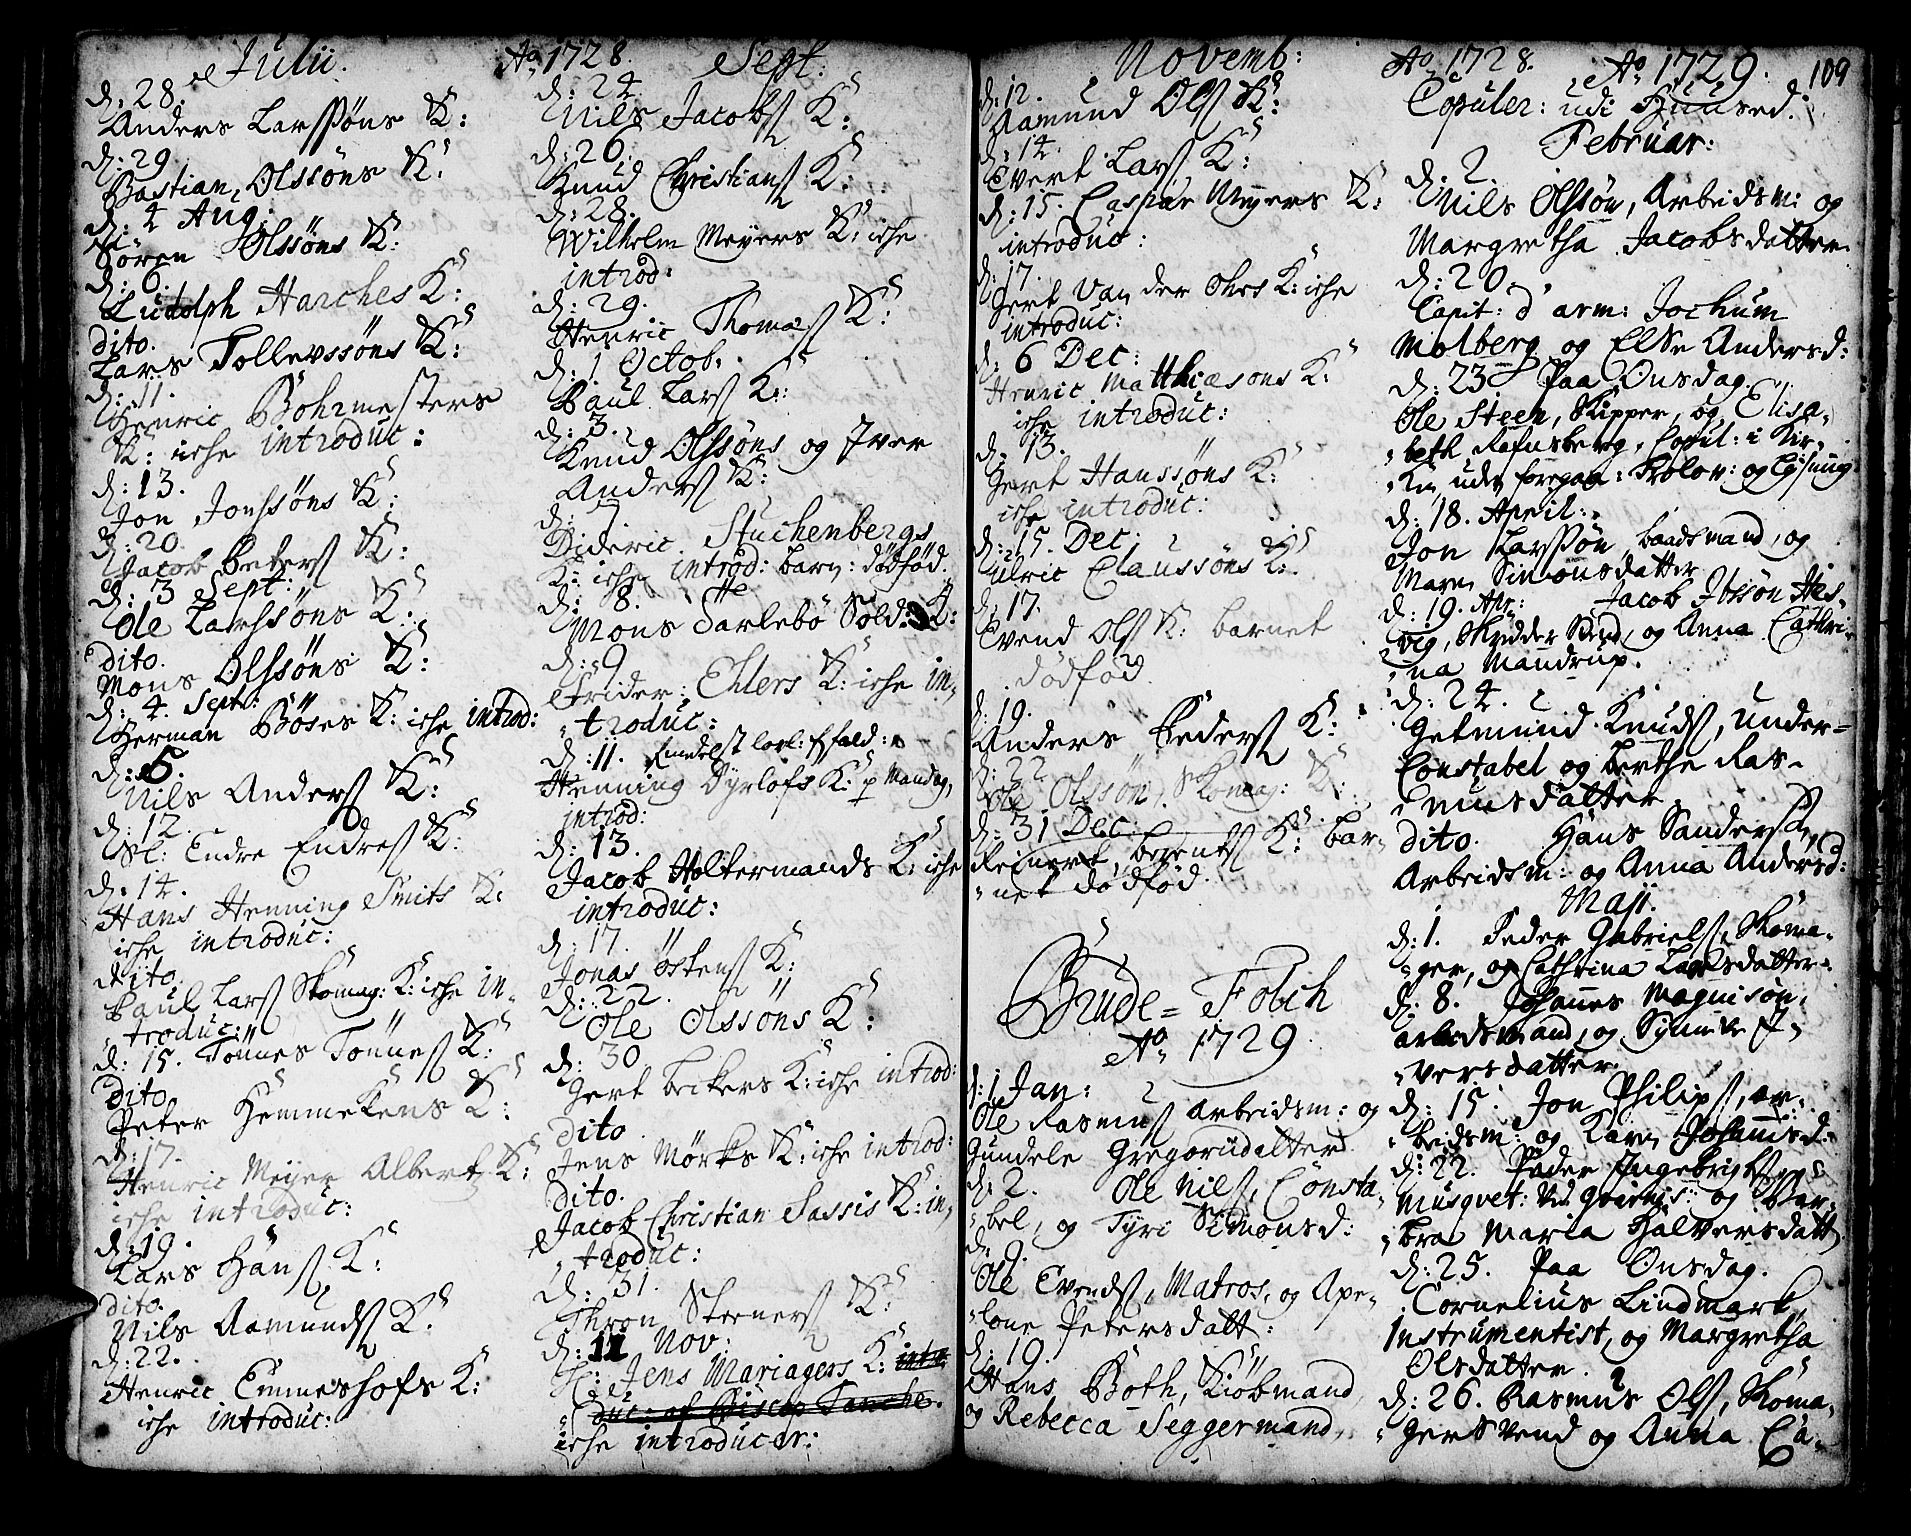 Julii.
d. 28.
Anders Larssöns K:
d: 29
Bastian Olssöns K:
d: 4 Aug:
Sören Olssöns K:
d: 6.
Ludolph Harches K:
dito.
Lars Tollevssöns K:
d: 11.
Henric Bohrmesters
K: iche introduc:
d: 13.
Jon Jonssöns K:
d: 20.
Jacob Peters K:
d: 3 Sept:
Ole Larssöns K:
dito.
Mons Olssöns K:
d: 4. Sept:
Herman Böses K: iche introd:
d: 5.
Nils Anders K:
d: 12.
Sl: Endre Endres K:
d. 14.
Hans Henning Smits K:
iche introduc:
dito.
Paul Lars Skomag: K: iche in-
troduc:
d: 15. Tönnes Tönnes K:
dito
Peter Hemmekens K:
d: 17.
Henric Meyer Albert K:
iche introduc:
d: 19.
Lars Hans K:
dito.
Nils Aamunds K:
d: 22.
Henric Emmeshofs K:
iche introduc:
Ao 1728. Sept:
d: 24.
Nils Jacobs K:
d: 26.
Knud Christians K:
d: 28.
Wilhelm Meyers K: iche
introd:
d: 29.
Henric Thomæs K:
d: 1 Octob.
Paul Lars K:
d: 3.
Knud Olssöns og Iver
Anders K:
d: 7
Dideric Stuchenbergs
K: iche introd: barn: dödföd.
d: 8.
Mons Särlebö Sold: K:
d: 9
Frider: Ehlers K: iche in-
troduc:
d: 11.
Henning Dyrlofs K: p Mandag,
introd:
d: 13.
Jacob Holtermands K: iche
introduc:
d: 17.
Jonas Östens K:
d: 22.
Ole Olssöns K:
d: 30
Gert beckers K: iche introd:
dito
Jens Mörks K: iche introd:
dito.
Jacob Christian Sassis K: in-
troduc:
d: 31.
Thron Steeners K:
d: 11 Nov:
Hr: Jens Mariagers K: intro
duc: af Biscop Tanche.
iche introducer:
Novemb:
d: 12.
Aamund Ols K:
d: 14.
Evert Lars K:
d: 15. Caspar Meyers K:
introduc:
d: 17.
Gert van der Ohes K: iche
introduc:
d: 6 Dec:
Henric Matthiæsons K:
iche introduc:
d: 13.
Gert Hanssöns K:
iche introduc:
d: 15. Dec:
Ulric Claussöns K:
d: 17.
Evend Ols K: barnet
dödföd.
d: 19.
Anders Peders K:
d: 22
Ole Olssön, Skomag: K:
d: 31 Dec:
Reinert berents K: bar-
net dödföd.
Brude = Folch
Ao 1729.
d: 1 Jan:
Ole Rasmus arbeidsm: og
Gundele Gregoriidatter
d: 2. Ole Nils, Consta-
bel, og Tyri Simonsd:
d: 9.
Ole Evends, Matros, og Ape-
lone Petersdatt:
d: 19.
Hans Both, Kiöbmand
og Rebecca Seggermand,
Ao 1728. Ao 1729. 109
Copuler: udi Huused.
Februar:
d: 2.
Nils Olssön, Arbeidsm: og
Margretha Jacobsdatter.
d: 20.
Capit: d' arm: Jochum
Molberg og Else Andersd:
d: 23 Paa Onsdag.
Ole Steen, Skipper, og Elisa-
beth Refnsberg, Copul: i Kir-
ken uden foregaa: Trolov: og Lysning
d: 18. April:
Jon Larssön, baadsmand, og
Maren Simonsdatter
d: 19. Apr: Jacob Ibssön Hes-
vig, Skrædder Svend, og Anna Cathri-
na Mandrup.
d: 24.
Getmund Knuds, Under=
Constabel og berthe Ras-
musdatter
dito. Hans Sanders,
Arbeidsm: og Anna Andersd:
Maji.
d: 1. Peder Gabriels, Skoma-
ger, og Cathrina Larsdatter.
d: 8. Johannes Magnison,
arbeidsmand, og Synneve I-
versdatter
d: 15. Jon Philips, ar-
beidsm: og Karen Johannisd:
d: 22. Peder Ingebrigts,
Musqvet: ved Gvarnis: og Bar-
bra Maria Halversdatt
d: 25. Paa Onsdag.
Cornelius Lindmark,
Instrumentist, og Margretha
Olsdatter.
d: 26. Rasmus Ols, Skoma-
ger Svend og Anna Ca-